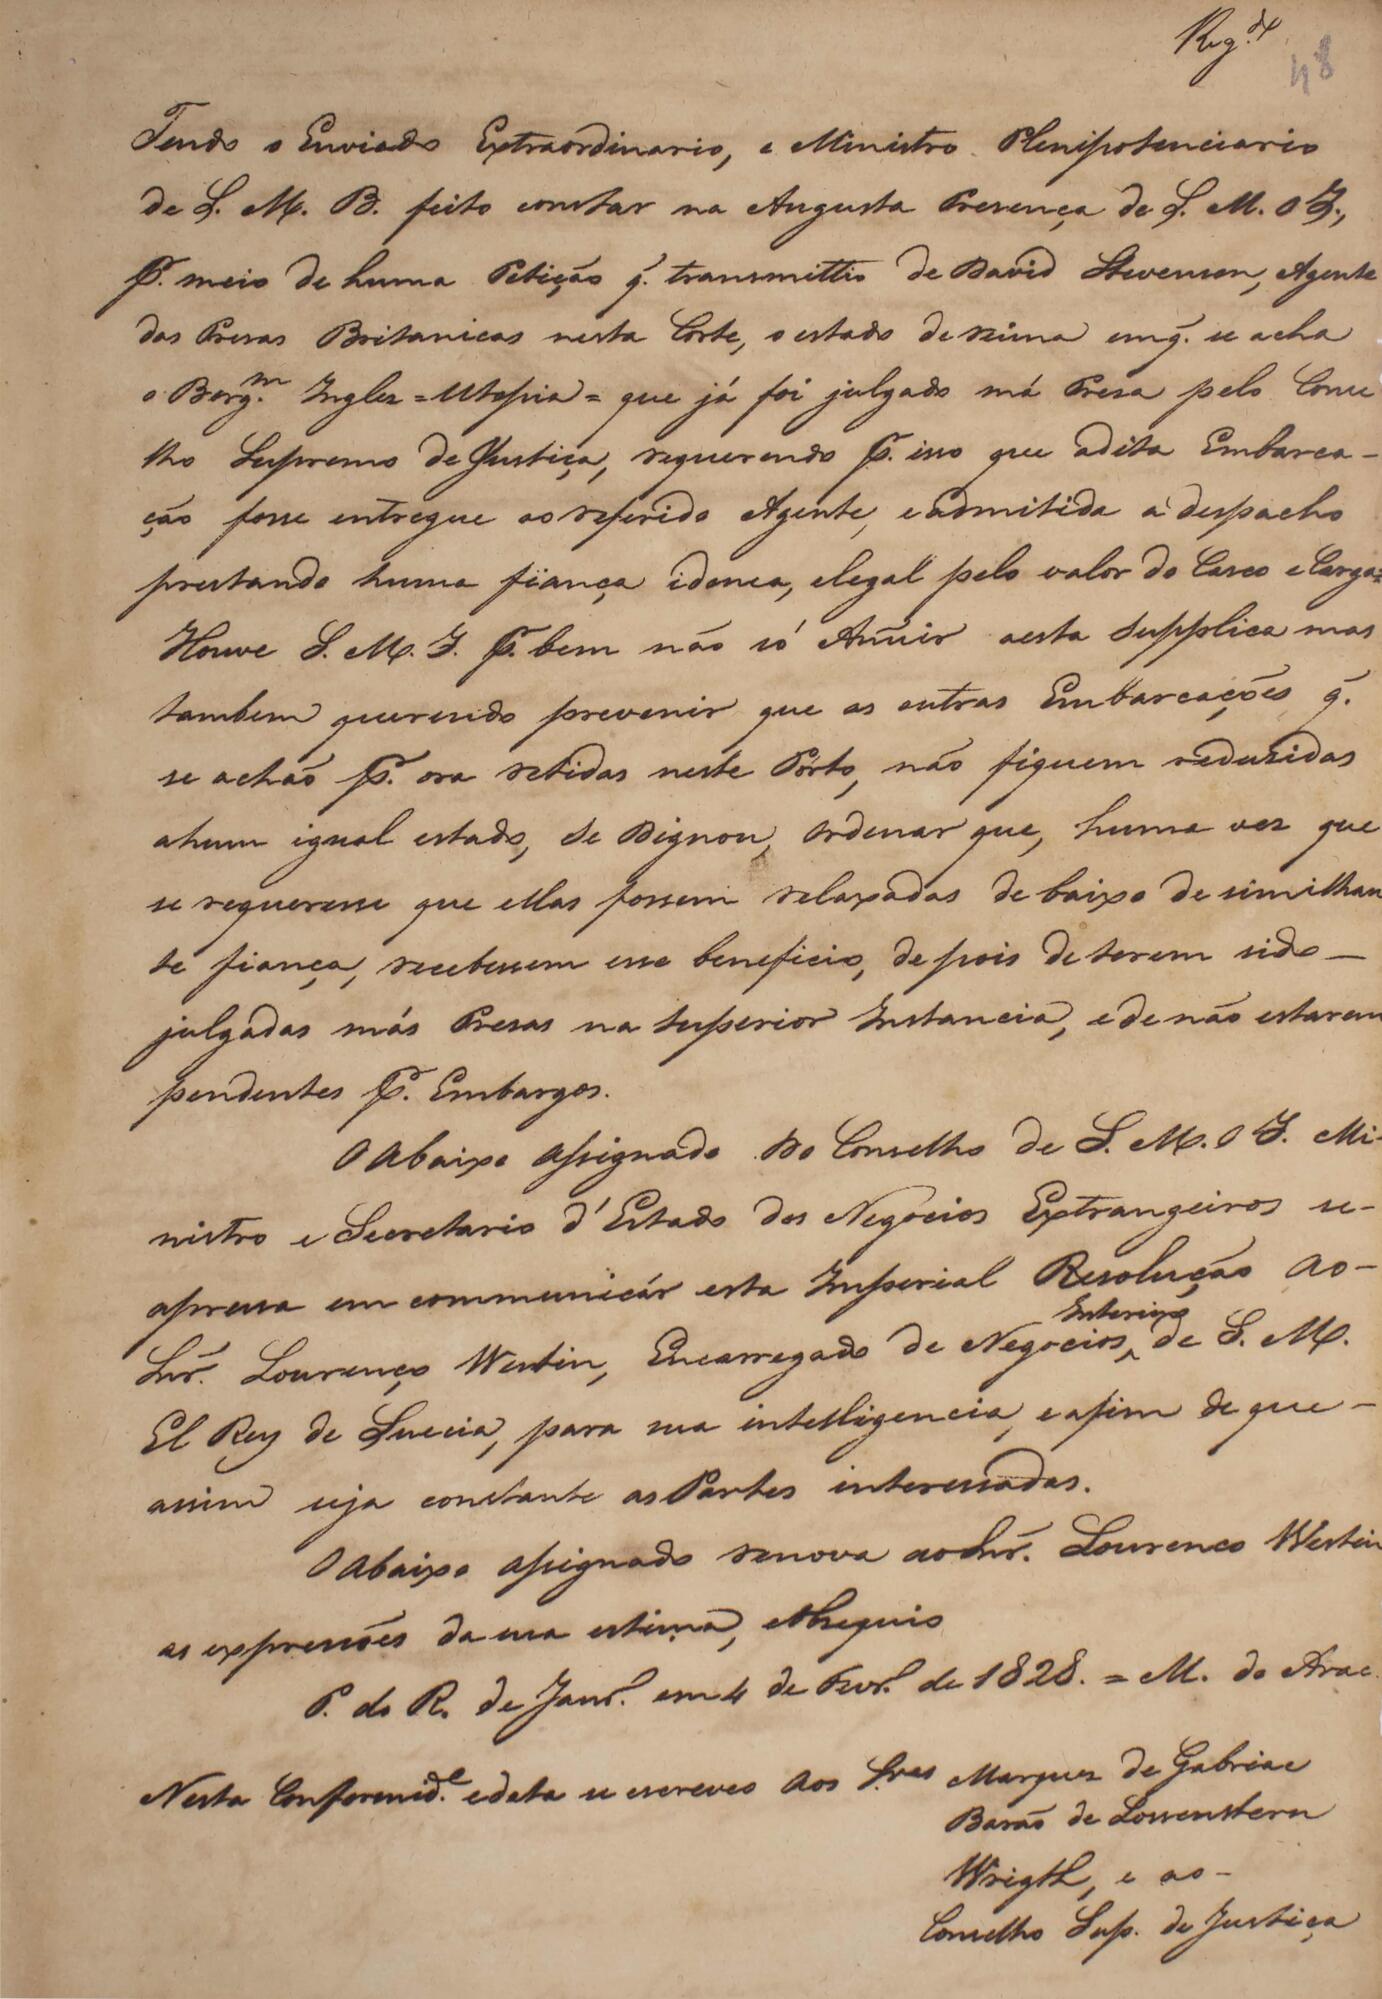 Reg.do
48
Tendo o Enviado Extraordinario, e Ministro Plenipotenciario
de S. M. B. feito constar na Augusta Presença de S. M. O I.,
P. meio de huma Petição q. transmittio de David Stevenson, Agente
das Presas Britanicas nesta Corte, o estado de ruina em q. se acha
o Berg.m Inglez = Utopia = que já foi julgado má Presa pelo Conse
lho Supremo de Justiça, requerendo P. isso que adita Embarca-
ção fosse entregue ao referido Agente, e admitida a despacho
prestando huma fiança idonea, elegal pelo valor do Casco e Carga=
Houve S. M. I. P. bem não só Anuir aesta Supplica mas
tambem querendo prevenir que as outras Embarcações q.
se achão P. ora retidas neste Pórto, não fiquem reduzidas
ahum igual estado, Se Dignou, Ordenar que, huma vez que
se requeresse que ellas fossem relaxadas de baixo de similhan
te fiança, recebessem esse beneficio, depois de terem sido -
julgadas más Presas na Superior Instancia, e de não estarem
pendentes P. Embargos.
O Abaixo Assignado do Conselho de S. M. O I. Mi-
nistro e Secretario d'Estado dos Negocios Extrangeiros se-
apressa em communicár esta Imperial Resolução ao-
Snr. Lourenço Westin, Encarregado de Negocios, Interino de S. M.
El Rey de Suecia, para sua intelligencia, e afim de que -
assim seja constante as Partes interessadas.
O Abaixo assignado renova ao Snr. Lourenco Westin
as expressões da sua estima, e Obsequio
P. do R. de Janr.o em 4 de Fevr.o de 1828. = M. do Arac.
Nesta Conformid.e e data se escreveo Aos S.res Marquez de Gabriac
Barão de Lossenstern
Wrigth, e ao -
Conselho Sup. de Justiça